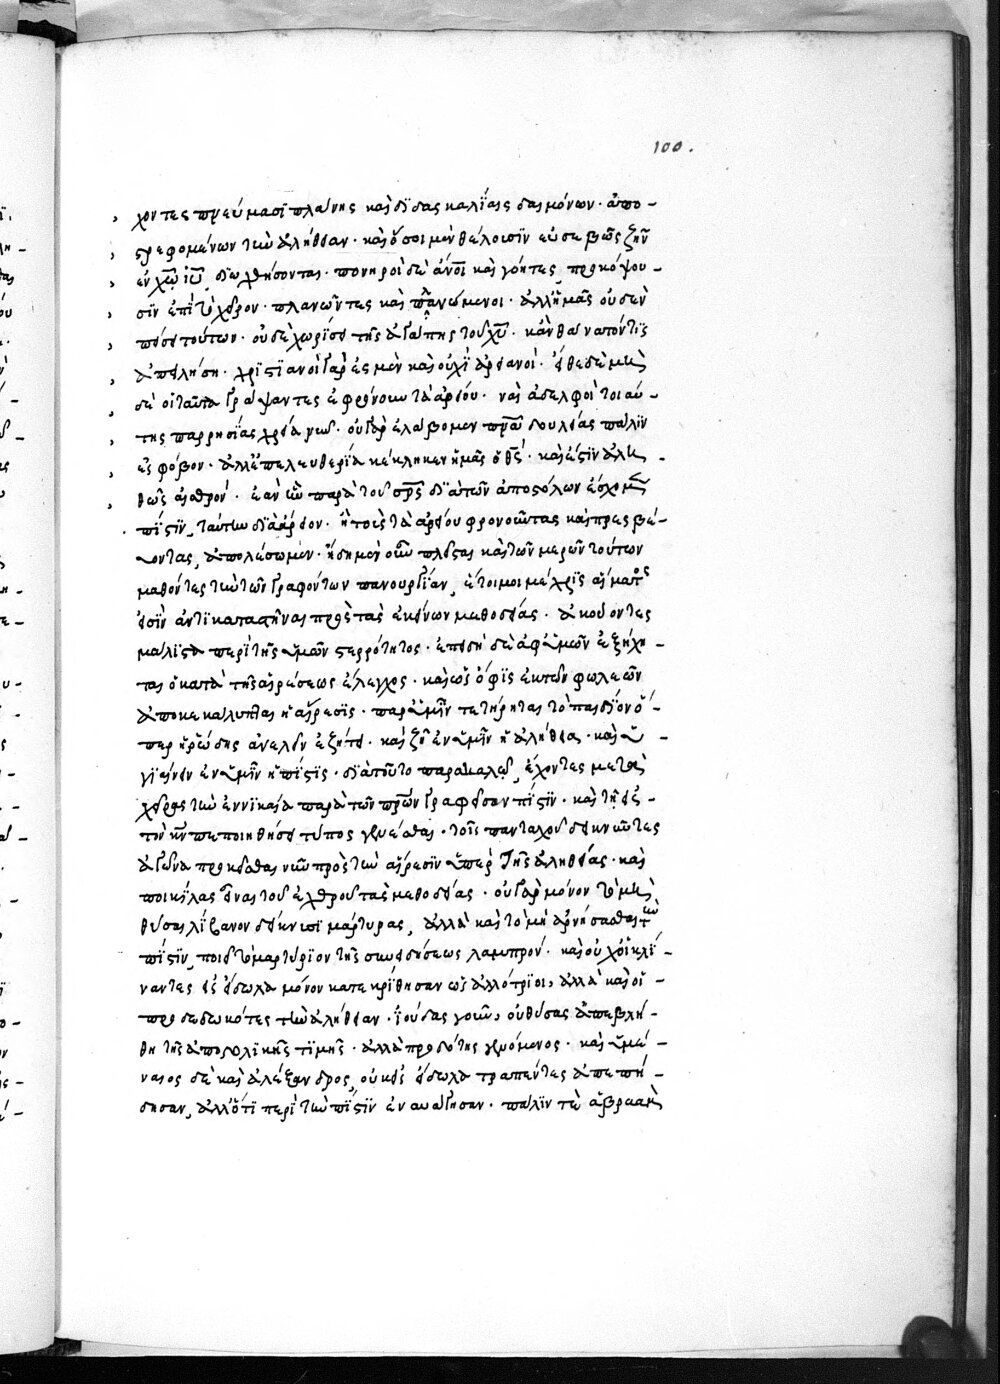 100.
χοντες πνεύμασϊ πλάνης καὶ διδασκαλΐαις δαιμόνων· ἀπο-
στρεφομένων τὴν ἀλήθειαν· καὶ ὅσοι μὲν θέλουσϊν εὐσεβῶς ζῆν
ἐν χῶ ἰῦ, διωχθήσονται· πονηροὶ δὲ ἄνοι καὶ γόητες, προκόψου-
σϊν ἐπὶ τὸ χεῖρον· πλανῶντες καὶ πλανώμενοι· ἀλλ' ἡμᾶς οὐδὲν
πείσει τούτων· οὐδὲ χωρίσει τῆς ἀγάπης τοῦ χυ· κἂν θάνατόν τϊς
ἀπειλήση· χρϊστϊανοὶ γάρ ἐσμεν καὶ οὐχῒ ἀρειανοί· εἴθε δὲ μη
δὲ οἱ ταῦτα γράψαντες ἐφρόνουν τὰ ἀρείου· ναὶ ἀδελφοὶ τοιαύ-
της παρρησίας χρεία νῦν· οὐ γὰρ ἐλάβομεν πνα δουλείας πάλϊν
εἰς φόβον· ἀλλ' ἐπ' ἐλευθερία κέκληκεν ἡμᾶς ὁ θς· καὶ ἔστϊν ἀλη-
θῶς αἰσχρόν· ἐὰν ἣν παρὰ τοῦ σρς διὰ τῶν ἀποστόλων ἔσχομεν
πίστϊν, ταύτην διὰ ἄρειον· ἢ τοὺς τὰ ἀρείου φρονοῦντας καὶ πρεσβεύ-
οντας, ἀπολέσωμεν· ἤδη μὲν οὖν πλεῖσται καὶ τῶν μερῶν τούτων
μαθόντες τὴν τῶν γραφόντων πανουργΐαν, ἕτοιμοι μέχρϊς αἵματος
εἰσϊν ἀντϊκαταστῆναι πρὸς τὰς ἐκείνων μεθοδείας· ἀκούοντες
μάλϊστα περὶ τῆς ὑμῶν στερρότητος· ἐπειδὴ δὲ ἀφ' ὑμῶν ἐξήχη-
ται ὁ κατὰ τῆς αἱρέσεως ἔλεγχος· καὶ ὡς ὄφϊς ἐκ τῶν φωλεῶν
ἀποκεκάλυπται ἡ αἵρεσϊς· παρ' ὑμῖν τετήρηται τὸ παιδΐον ὅ-
περ ἡρώδης ἀνελεῖν ἐζήτει· καὶ ζῆ ἐν ὑμῖν ἡ ἀλήθεια· καὶ ὑ-
γϊαίνει ἐν ὑμῖν ἡ πίστϊς· διὰ τοῦτο παρακαλῶ, ἔχοντες μετὰ
χεῖρας τὴν ἐν νϊκαία παρὰ τῶν πρων γραφεῖσαν πίστϊν· καὶ τῆ εἰς
τὸν κν πεποιθήσει τύπος γένεσθαι· τοῖς πανταχοῦ δεικνῶντες
ἀγῶνα προκεῖσθαι νῦν πρὸς τὴν αἵρεσϊν ὑπὲρ τῆς ἀληθείας· καὶ
ποικΐλας εἶναι τοῦ ἐχθροῦ τὰς μεθοδείας· οὐ γὰρ μόνον τὸ μὴ
θῦσαι λίβανον δείκνυσϊ μάρτυρας, ἀλλὰ καὶ τὸ μὴ ἀρνήσασθαι τὴν
πίστϊν, ποιεῖ τὸ μαρτύρϊον τῆς συνειδήσεως λαμπρόν· καὶ οὐχ οἱ κλΐ-
ναντες εἰς εἴδωλα μόνον κατεκρίθησαν ὡς ἀλλότρϊοι, ἀλλὰ καὶ οἱ
προδεδωκότες τὴν ἀλήθειαν· ἰούδας γοῦν, οὐ θύσας ἀπεβλή-
θη τῆς ἀποστολϊκῆς τϊμῆς· ἀλλὰ προδότης γενόμενος· καὶ ὑμέ-
ναιος δὲ καὶ ἀλέξανδρος, οὐκ εἰς εἴδωλα τραπέντες ἀπεπή-
δησαν, ἀλλ' ὅτϊ περὶ τὴν πίστϊν ἐναυάγησαν· πάλϊν τὲ ἀβραὰμ